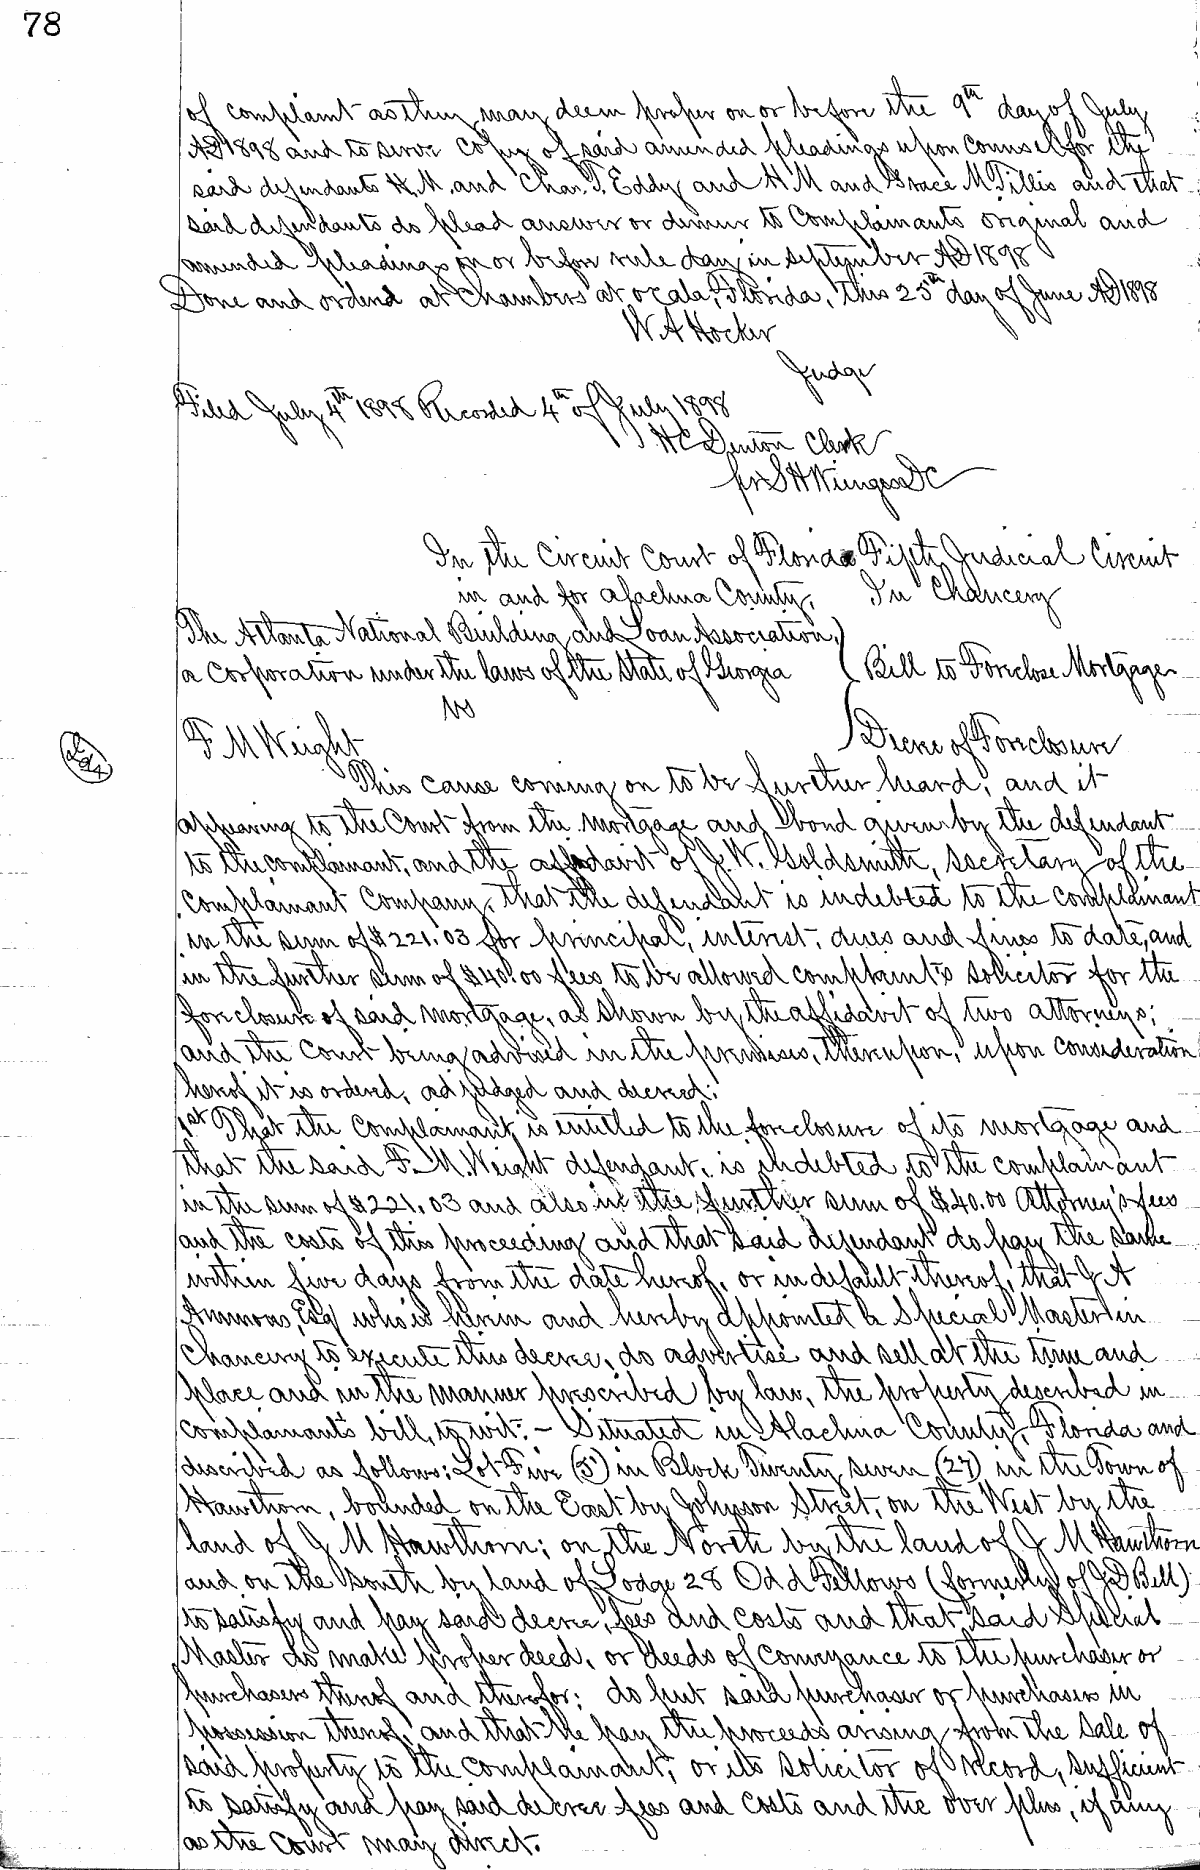 78
of complaint as they may deem proper on or before the 9th day of July
AD 1898 and to serve copy of said amended pleadings upon counsel for the
said defendants H. M. and Chas. T. Eddy and H M and Grace M Tillis and that
said defendants do plead answer or demur to Complainants original and
amended pleadings on or before rule day in September AD 1898
Done and ordered at Chambers at Ocala, Florida, this 25th day of June AD 1898
W. A Hocker
Judge
Filed July 4th 1898 Recorded 4th of July 1898
H C Denton Clerk
pr S H Wienges DC
In the Circuit Court of Florida Fifth Judicial Circuit
in and for Alachua County. In Chancery
The Atlanta National Building and Loan Association,
a Corporation under the laws of the State of Georgia
Bill to Foreclose Mortgage
vs
F M Weight
Decree of Foreclosure
This cause coming on to be further heard, and it
appearing to the Court from the mortgage and bond given by the defendant
to the complainant, and the affidavit of J. W. Goldsmith, secretary of the
Complainant Company, that the defendant is indebted to the complainant
in the sum of $221.03 for principal, interest, dues and fines to date, and
in the further sum of $40.00 fees to be allowed complaint's solicitor for the
foreclosure of said mortgage, as shown by the affidavit of two attorneys;
and the Court being advised in the premises, thereupon, upon consideration
hereof it is ordered, adjudged and decreed:
1st That the Complainant is entitled to the foreclosure of its mortgage and
that the said F. M. Weight defendant, is indebted to the complainant
in the sum of $221.03 and also in the further sum of $40.00 Attorney's fees
and the costs of this proceeding and that said defendant do pay the same
within five days from the date hereof, or in default thereof, that J A
Ammons, Esq who is herein and hereby appointed a Special Master in
Chancery to execute this decree, do advertise and sell at the time and
place and in the manner prescribed by law, the property described in
complainant's bill, to wit:- Situated in Alachua County, Florida and
described as follows: Lot Five (5) in Block Twenty seven (27) in the Town of
Hawthorn, bounded on the East by Johnson Street, on the West by the
land of J M Hawthorn; on the North by the land of J M Hawthorn
and on the South by land of Lodge 28 Odd Fellows (formerly of J D Bell)
to satisfy and pay said decree, fees and costs and that said Special
Master do make proper deed, or deeds of conveyance to the purchaser or
purchasers thereof and therefor; do put said purchaser or purchasers in
possession thereof, and that he pay the proceeds arising from the sale of
said property to the Complainant, or its solicitor of record, sufficient
to satisfy and pay said decree fees and costs and the over plus, if any
as the Court may direct.